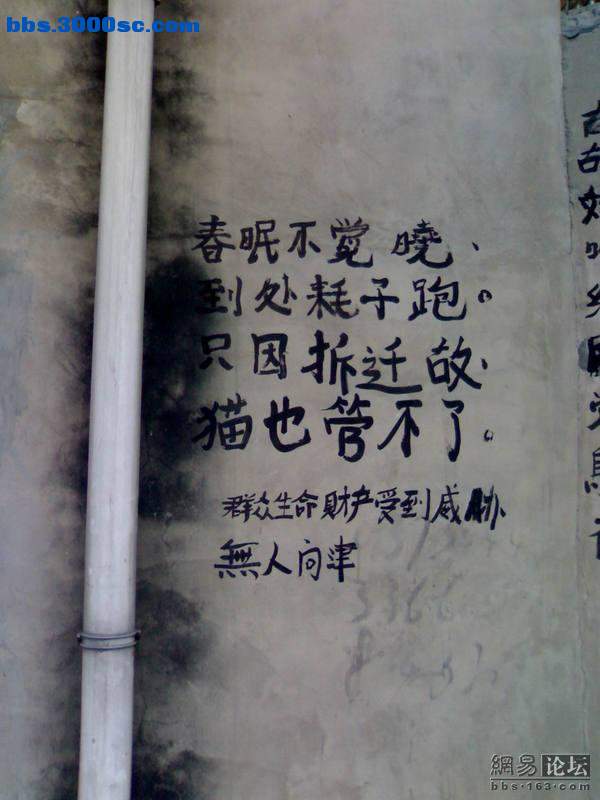 bbs.3000sc.com
春眠不觉曉、
到处耗子跑。
只因拆迁故、
猫也管不了。
群众生命财产受到威胁
無人向津
網易论坛
bbs·163.com